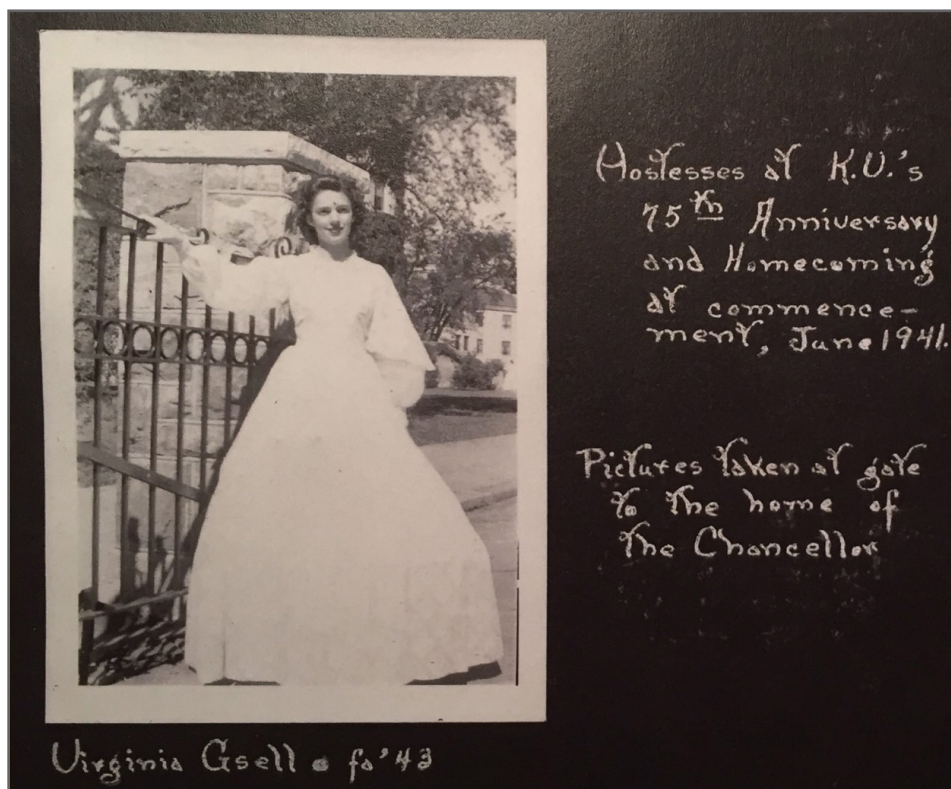 Hostesses at K.U.'s
75th Anniversary
and Homecoming
at commence-
ment, June 1941.
Pictures taken at gate
to the home of
the Chancellor
Virginia Gsell • fa'43